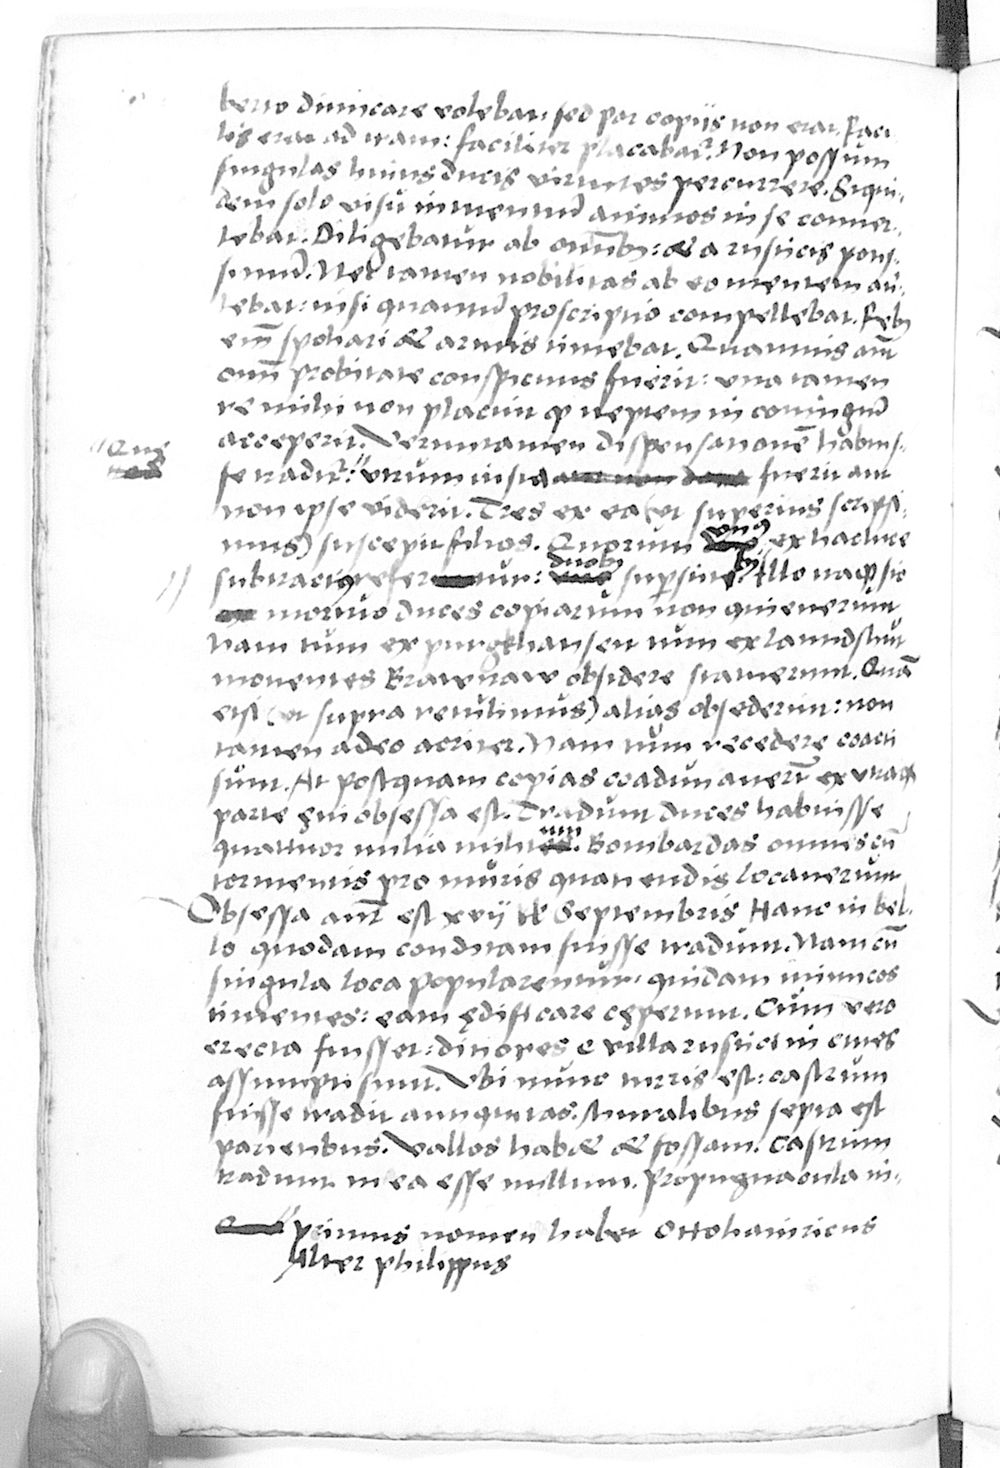 berto dimicare volebat: sed par copijs non erat. Faci
lis erat ad iram: faciliter placabat᷑. Non possum
singulas huius ducis virtutes percurrere. Siqui-
dem solo visu intuentiũ animos in se conuer-
tebat. Diligebatur ab omnib9: & a rusticis potis-
simũ. Nec tamen nobilitas ab eo mentem au-
tebat: nisi quantũ proscriptio compellebat. Reb9
em̃ spoliari & armis timebat. Quamuis aũt
omĩ probitate conspicuus fuerit: vna tamen
re mihi non placuit ꝙ neptem in coniugiũ
acceperit. Veruntamen dispensationẽ habuis-
Que
se tradit᷑: vtrum iusta fuerit aut
non ipse viderit. Tres ex ea (vt superius scripsi-
mus) suscepit filios. Quorum vn9 ex hac luce
subtract9 refertur: duob9 sup̱stitib9. Illo naq̃ sic
mortuo duces copiarum non quieuerunt
Nam tum ex purgkhausen tum ex lanndshut
mouentes Brawnaw obsidere statuerunt. Quã
etsi (vt supra retulimus) alias obsederint: non
tamen adeo acriter. Nam tum recedere coacti
sunt. At postquam copias coadunauerũt ex vtraq̃
parte Eni obsessa est. Tradunt duces habuisse
quattuor milia militum. Bombardas omnes cũ
tormentis pro muris quatiendis locauerunt
Obsessa aũt est xvij kł Septembris Hanc in bel-
lo quodam conditam fuisse tradunt. Nam cũ
singula loca popularentur: quidam inimicos
timentes: eam ędificare cęperunt. Cum vero
erecta fuisset: ditiores e villa rustici in ciues
assumpti sunt. Vbi nunc turris est: castrum
fuisse tradit antiquitas. muralibus septa est
parietibus. Vallos hab& & fossam. Castrum
tradunt in ea esse nullum. Propugnacula in-
primus nomen habet Ottohainricus
Alter philippus